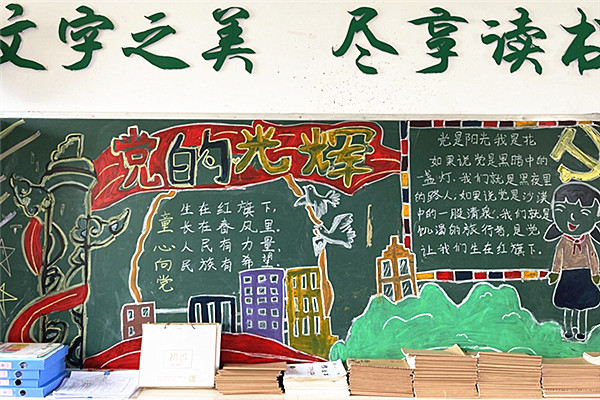 文字之美 尽享读
党的光辉
童心向党
生在红旗下,
长在春风里
人民有力量
民族有希望.
党是阳光我是花
如果说党是黑暗中的
一盏灯,我们就是黑夜里
的路人,如果说党是沙漠
中的一股清泉,我们就是
饥渴的旅行者,是党,
让我们生在红旗下.